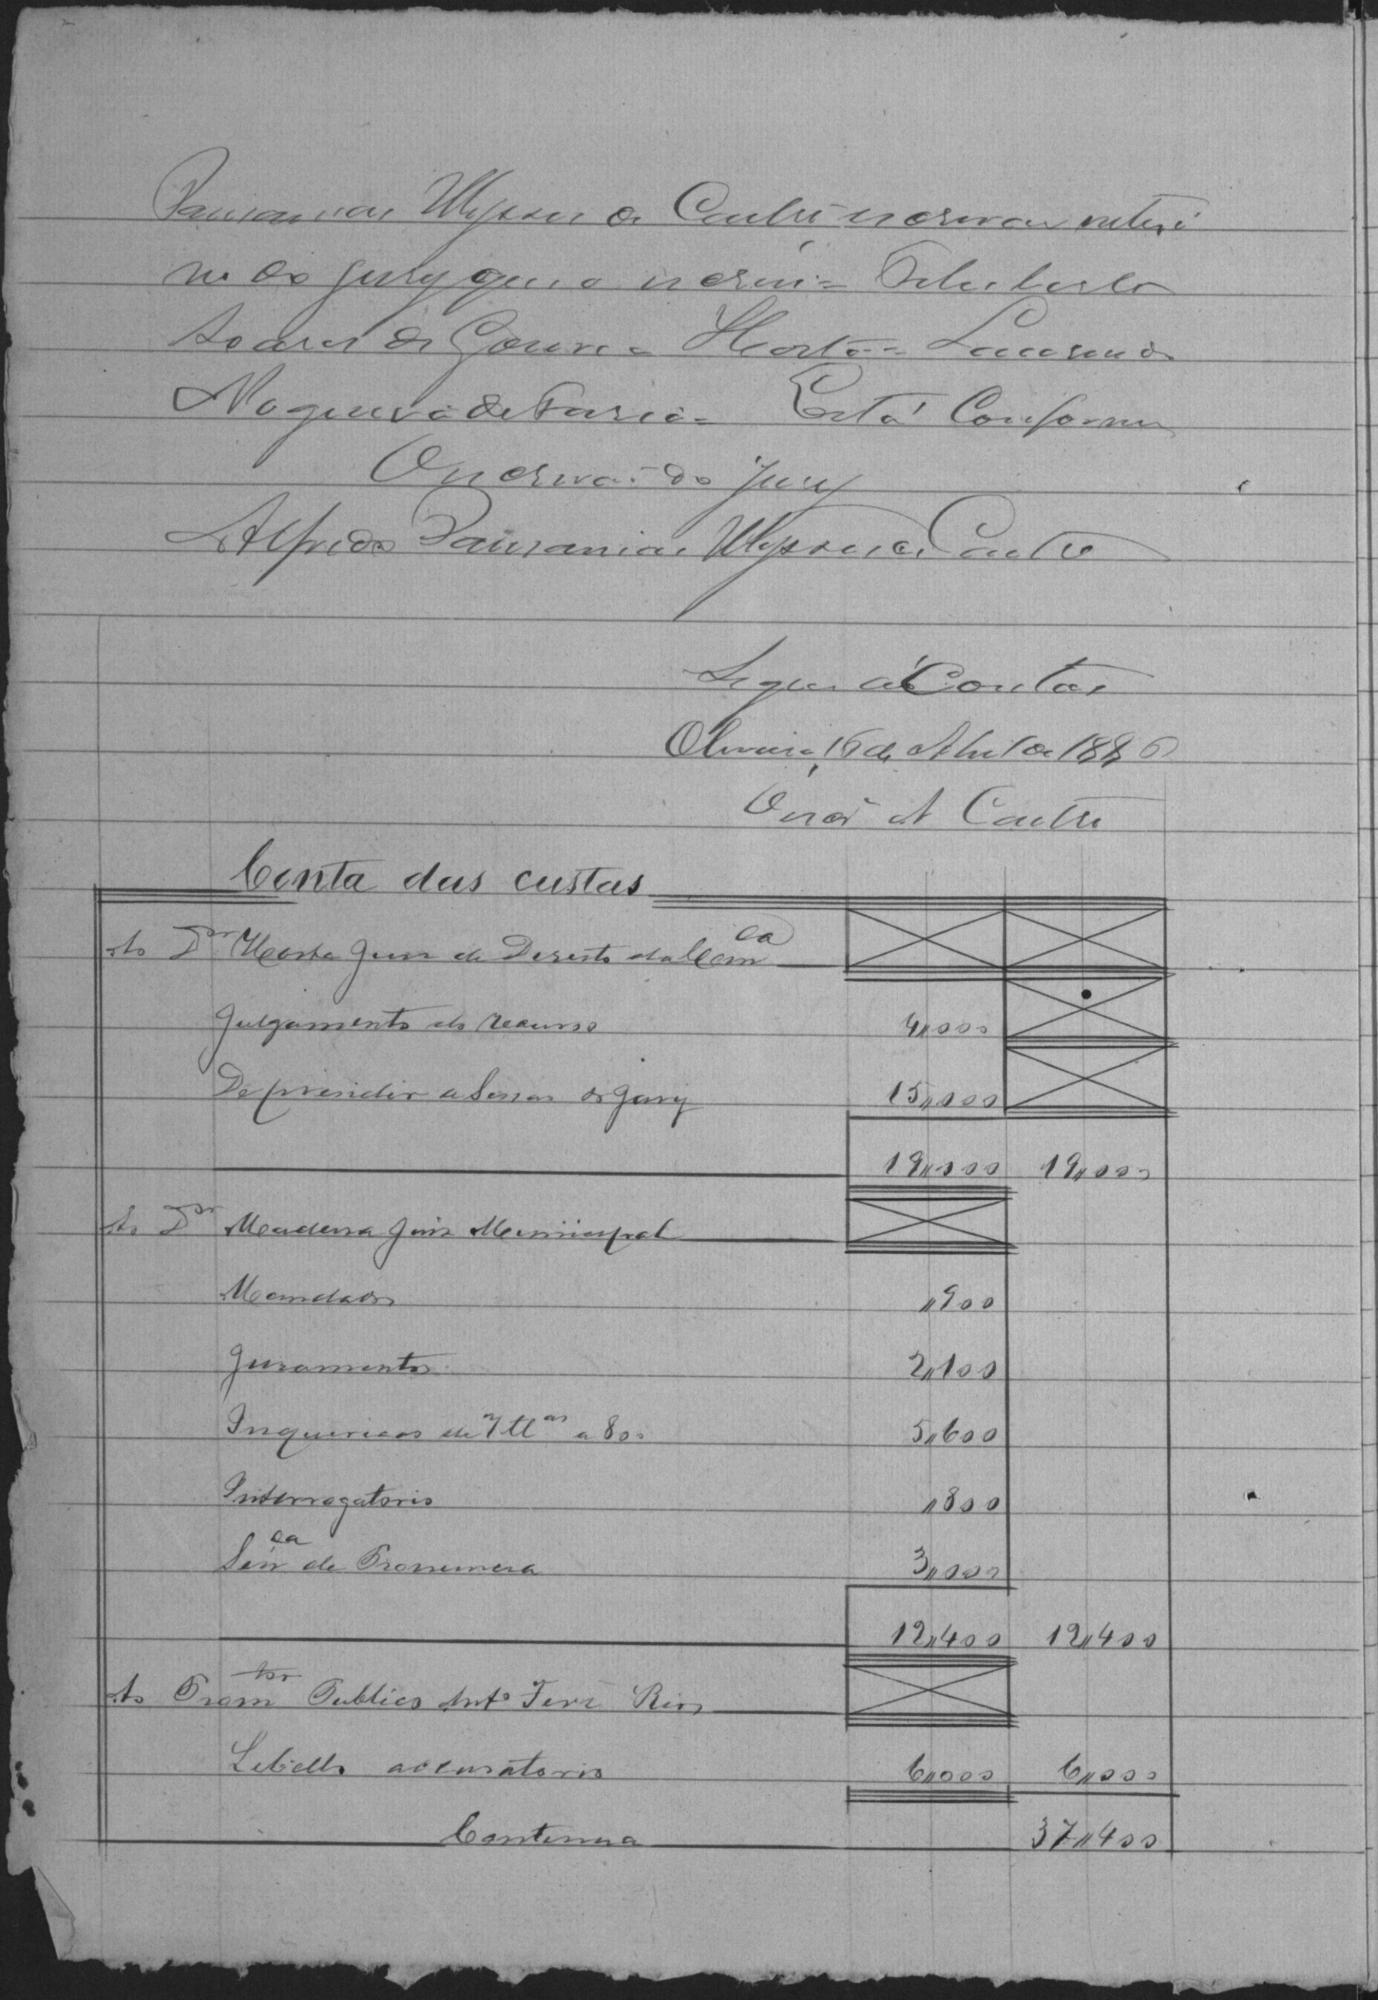 Pausanias Ulysses de Castro escrivão interi
no do jury que o escrevi =
Soares de Gouvea Horta =
Nogueira de Faria = Está Conforme
O escrivão do jury
Alfredo Pausanias Ulysses de Castro
Segue as Contas
Oliveira, 16 de Abril de 1886
A Castro
Conta das custas
Ao Dr Horta Juiz de Direito da Com ca
Julgamento do recurso 4,,000
De presidir a Sessão do Jury 15,,000
19,,000 19,,000
Ao Dr Madeira Juiz Municipal
Mandado ,,900
Juramentos 2,,100
Inquiricões de 7 ttas a 800 5,,600
Interrogatorio ,,800
Sen ca de Pronuncia 3,,000
12,,400 12,,400
Ao Prom tor Publico Anto Ferr Rios
Libello accusatorio 6,,000 6,,000
Continua 37,,400